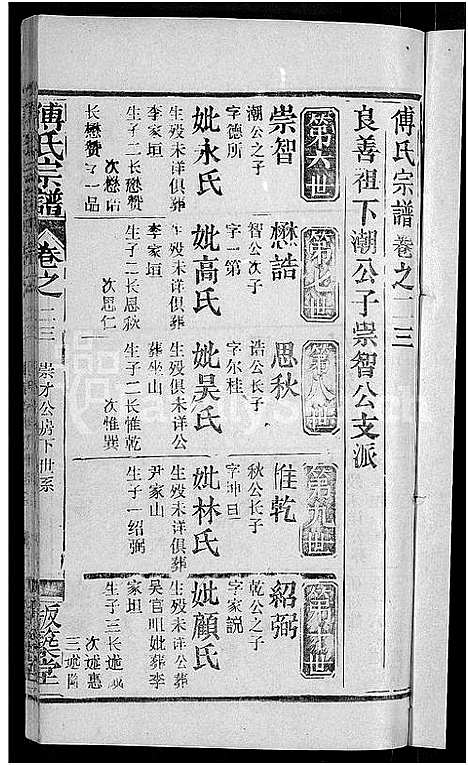 傅氏宗譜卷之二三
良善祖下潮公子崇智公支派
第六世
崇智
潮公之子
字德所
妣永氏
生歿未详俱葬
李家垣
生子二长懋赞
次懋誥
长懋赞
第七世
懋誥
智公次子
字一第
妣高氏
生歿未详俱葬
李家垣
生子二长思秋
次思仁
第八世
思秋
誥公长子
字尔桂
妣吴氏
生歿俱未详公
葬坐山
生子二长惟乾
次惟巽
第九世
惟乾
秋公长子
字坤日
妣林氏
生歿未详俱葬
尹家山
生子一绍弼
第十世
紹弼
乾公之子
字家説
妣顧氏
生歿未详公葬
吴官咀妣葬李
家垣
生子三长述
次述惠
三述
傅氏宗譜
卷之二三
崇才公房下世系
版築堂